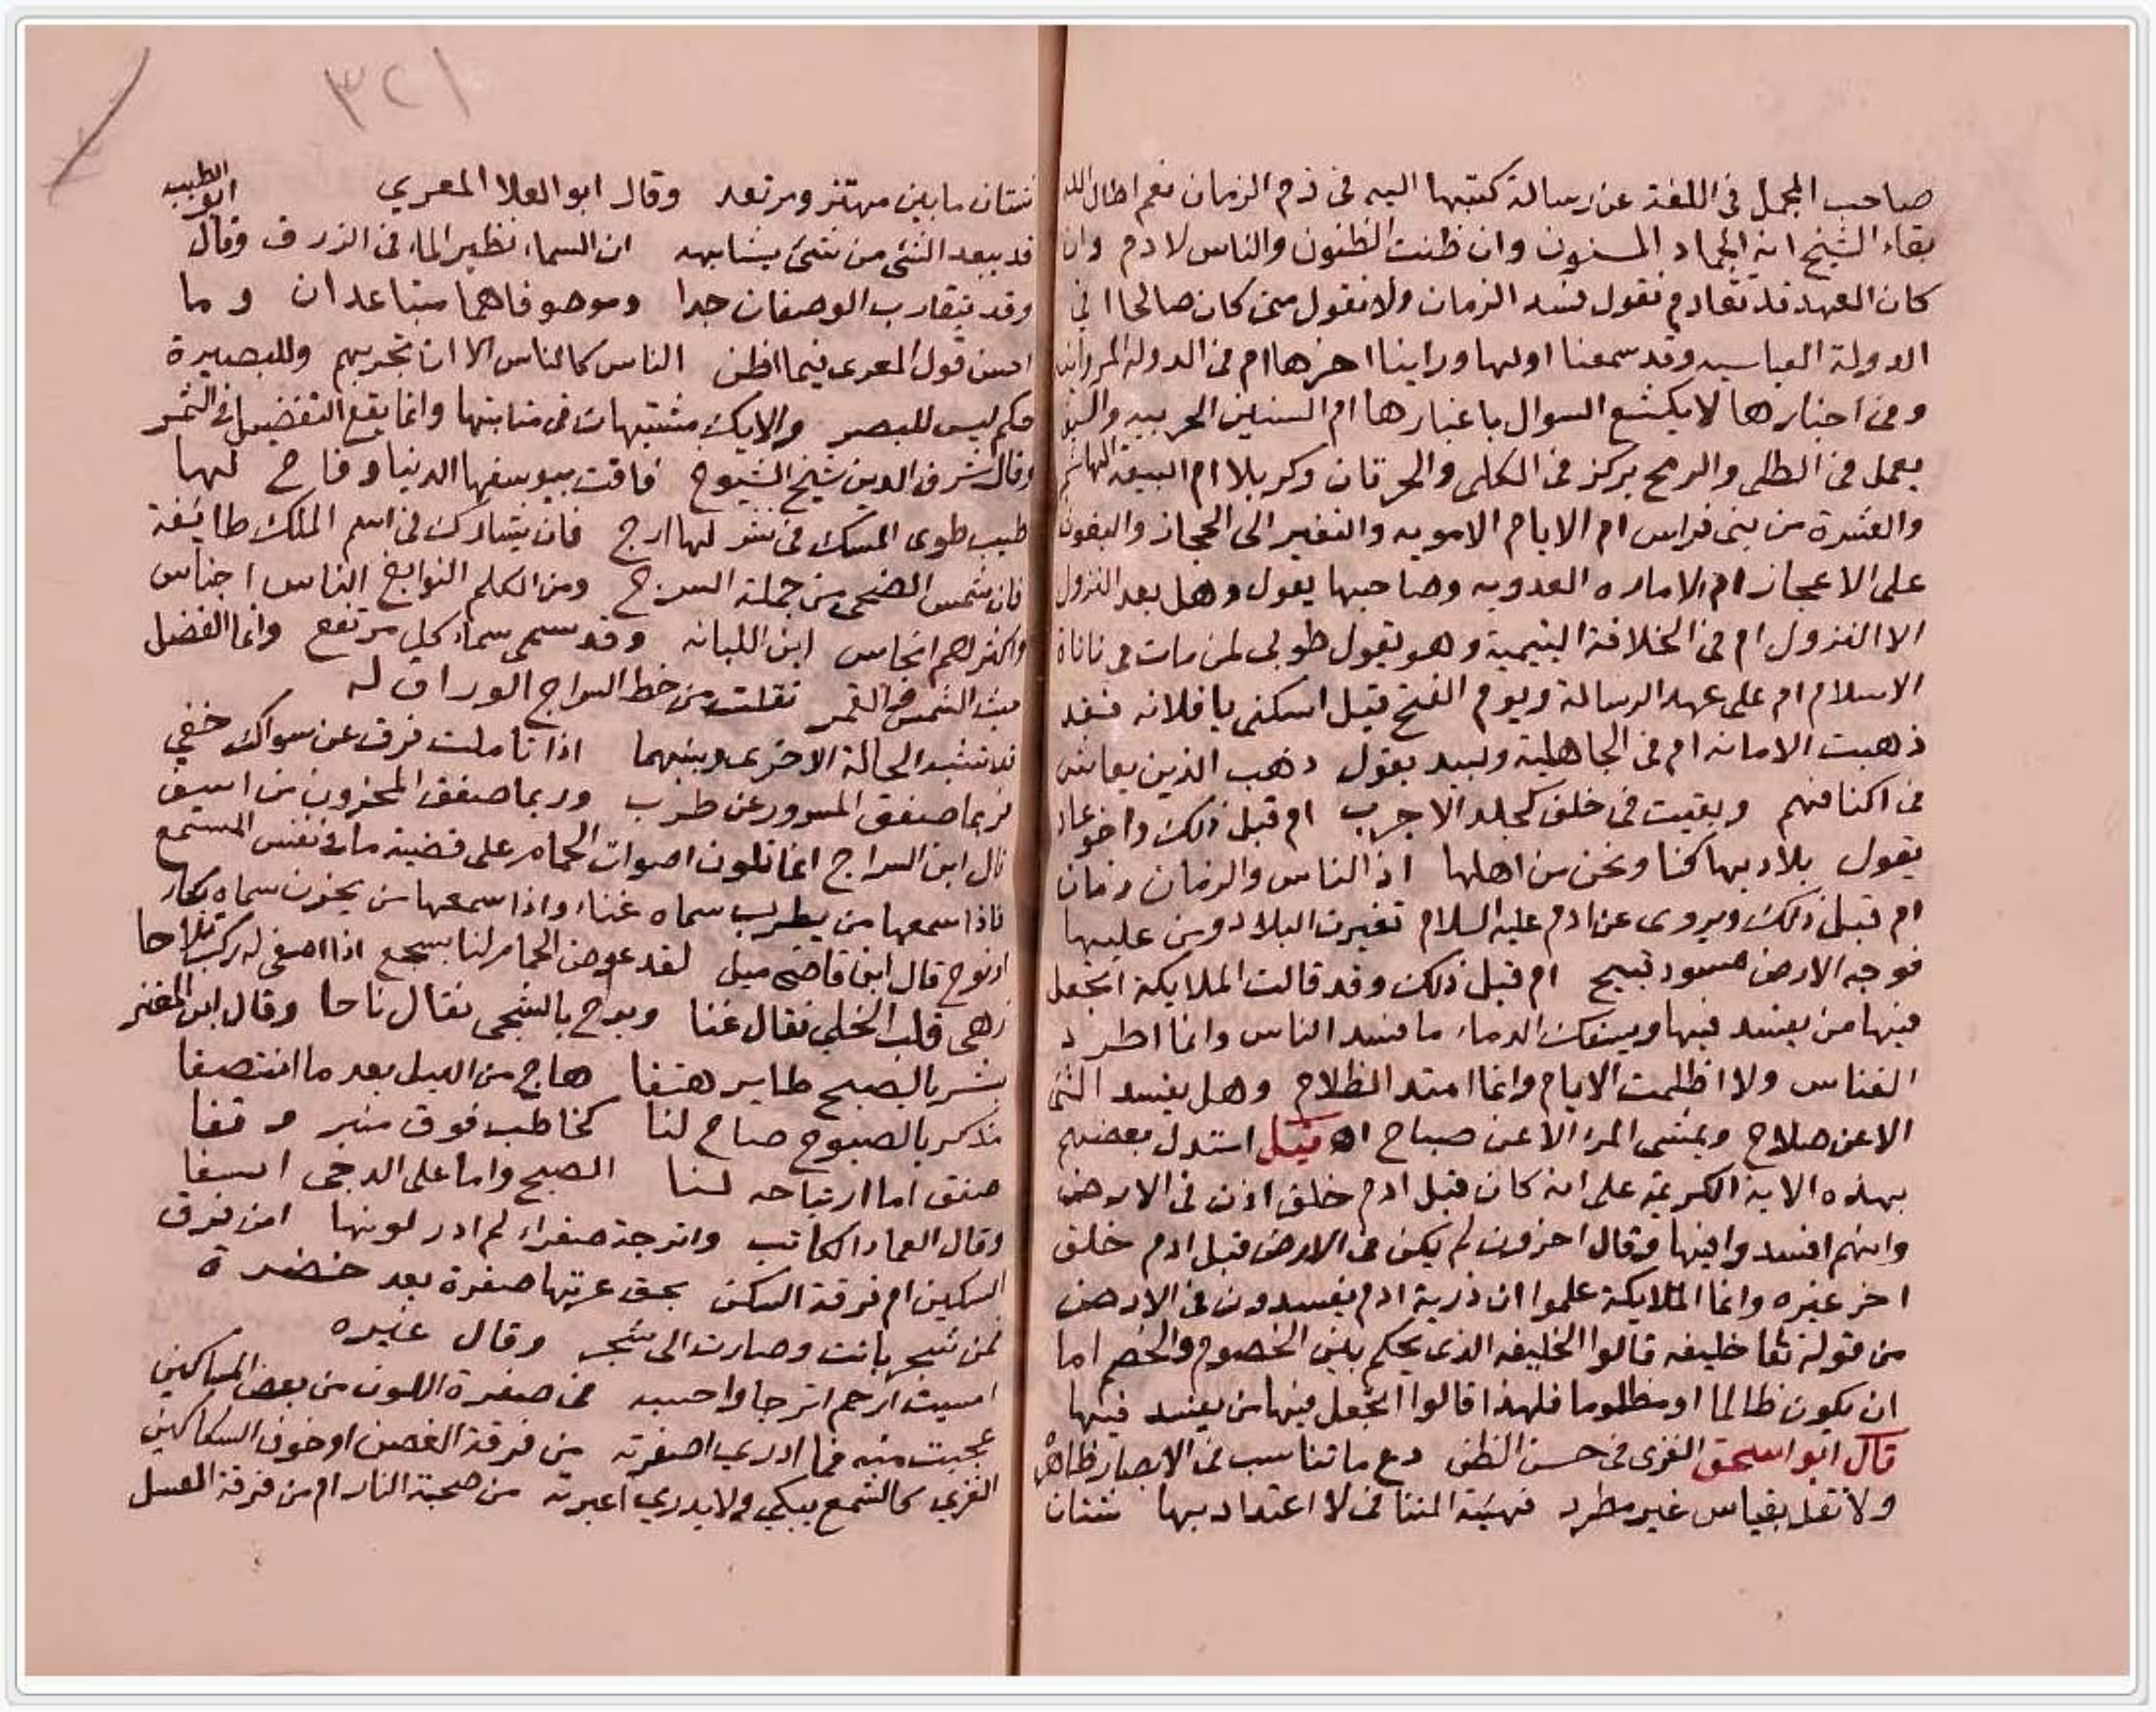 صاحب المجمل في اللغة عن رسالة كتبها اليه في ذم الزمان نعم اطال الله
بقاء الشيخ انه الحماء المسنون وان ظنت الظنون والناس لادم وان
كان العهد قد تقادم تقول فسد الزمان ولا نقول متى كان صالحا افي
الدولة العباسيه وقد سمعنا اولها وراينا اخرها ام في الدولة المروانيه
وفي اخبارها لا يكشع السوال باغبارها ام السنين الحربيه والسيف
يعمل في الطلى والرمح يركز في الكلى والحرتان وكربلا ام البيعة الهاشميه
والعشرة من بنى فراس ام الايام الامويه والنفير الى الحجاز والعيون
على الاعجاز ام الاماره العدويه وصاحبها يقول وهل بعد النزول
الا النزول ام في الخلافة التيمية وهو يقول طوبى لمن مات في ناناة
الاسلام ام على عهد الرسالة ويوم الفتح قيل اسكتى يا فلانه فقد
ذهبت الامانه ام في الجاهلية ولبيد يقول ذهب الذين يعاش
في اكنافهم وبقيت في خلف كجلد الاجرب ام قبل ذلك واخو عاد
يقول بلاد بها كنا ونحن من اهلها اذ الناس والزمان زمان
ام قبل ذلك ويروى عن ادم عليه السلام تغيرت البلاد ومن عليها
فوجه الارض مسود قبيح ام قبل ذلك وقد قالت الملايكة اتجعل
فيها من يفسد فيها ويسفك الدماء ما فسد الناس وانما اطرد
القناس ولا اظلمت الايام وانما امتد الظلام وهل يفسد الشى
الا عن صلاح ويمسى المرء الا عن صباح اه قيل استدل بعضهم
بهذه الاية الكريمة على انه كان قبل ادم خلق اذن في الارض
وانهم افسدوا فيها وقال اخرون لم يكن في الارض قبل ادم خلق
اخر غيره وانما الملايكة علموا ان ذرية ادم يفسدون في الارض
من قوله تعا خليفه قالوا الخليفه الذي يحكم بين الخصوم والخصم اما
ان يكون ظالما او مظلوما فلهذا قالوا اتجعل فيها من يفسد فيها
قال ابو اسحق الغزى في حسن الظن دع ما تناسب في الابصار ظاهره
ولا تقل بقياس غير مطرد فهيئة المتنافى لا اعتداد بها شتان
٣٢١
شتان ما بين مهتز ومرتعد وقال ابو العلا المعري
قد يبعد الشئ من شئ يشابهه ان السماء نظير الماء في الزرق وقال ابو الطيب
وقد يتقارب الوصفان جدا وموصوفاهما متباعدان وما
احسن قول المعرى فيما اظن الناس كالناس الا ان تجربهم وللبصيرة
حكم ليس للبصر والايك مشتبهات في منابتها وانما يقع التفضيل في الثمر
وقال شرف الدين شيخ الشيوخ فاقت بيوسفها الدنيا وفاح لها
طيب طوى المسك في نشر لها ارج فان يشارك في اسم الملك طائفة
فان شمس الضحى من جملة السرج ومن الكلم النوابغ الناس اجناس
واكثرهم انجاس ابن اللبانه وقد سمى سماء كل مرتفع وانما الفضل
حيث الشمس والقمر نقلت من خط السراج الوراق له
قد تشبه الحالة الاخرى وبينهما اذا تاملت فرق عن سواك خفي
فربما صفق المسرور عن طرب وربما صفق المحزون من اسف
قال ابن السراج انما تلون اصوات الحمام على قضية ما في نفس المستمع
فاذا سمعها من يطرب سماه غناء واذا سمعها من يحزن سماه بكاء
او نوح قال ابن قاضى ميل لقد عرض الحمام لنا بسجع اذا اصغى له ركب تلاحا
زهى قلب الخلي فقال غنا وبرح بالشجى فقال ناحا وقال ابن المعتز
بشر بالصبح طاير هتفا هاج من الليل بعد ما انتصفا
مذكر بالصبوح صاح لنا كخاطب فوق منبر وقفا
صفق اما ارتياحه لسنا الصبح واما على الدجى اسفا
وقال العماد الكاتب واترجة صفراء لم ادر لونها امن فرق
السكين ام فرقة السكن بحق عرتها صفرة بعد خضرة
فمن شجر بانت وصارت الى شجر وقال غيره
امسيت ارحم اترجا واحسبه في صفرة اللون من بعض المساكين
عجبت منه فما ادري اصفرته من فرقة الغصن او خوف السكاكين
الغزي كالشمع يبكي ولا يدري اعبرته من صحبة النار ام من فرقة العسل